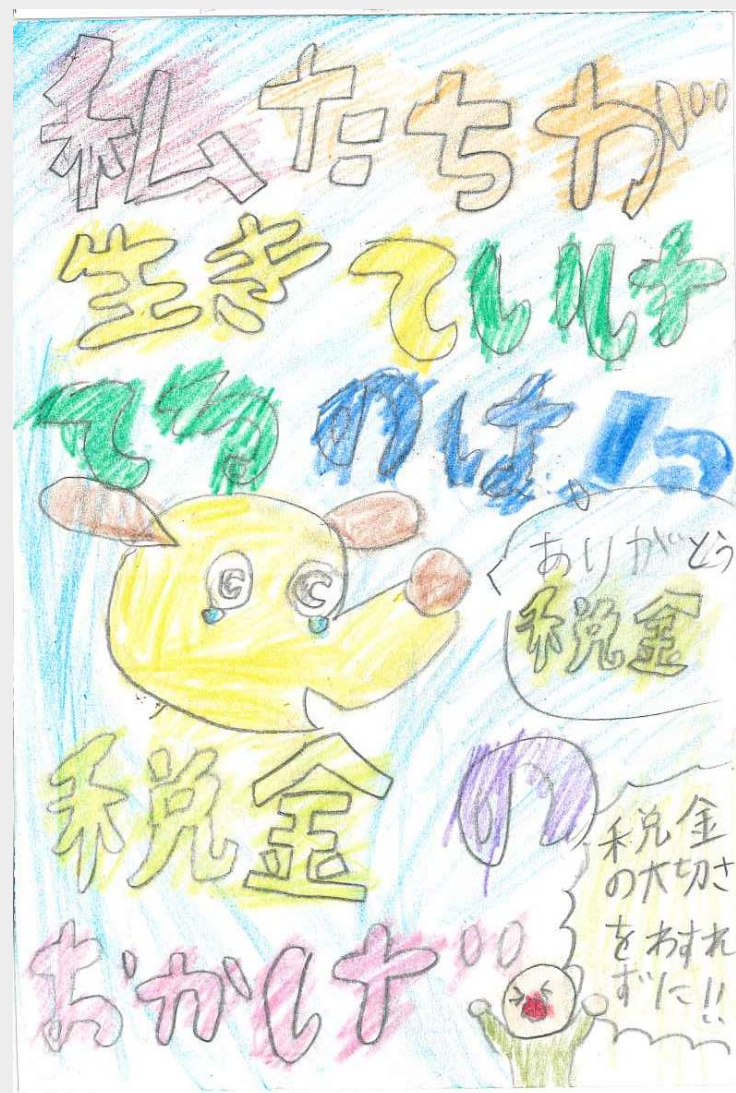 私たちが
生きていけ
てるのは!っ
ありがとう
税金
税金の
おかげ
税金
の大切さ
をわすれ
ずに!!